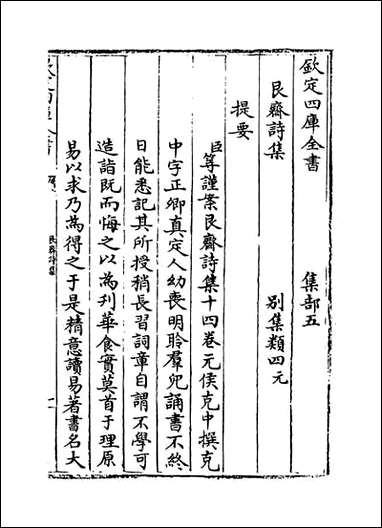 欽定四庫全書　　　集部五
艮齋詩集　　　　　別集類四元
提要
臣等謹案艮齋詩集十四卷元侯克中撰克
中字正卿真定人幼喪明聆羣兒誦書不終
日能悉記其所授稍長習詞章自謂不學可
造詣既而悔之以為刋華食實莫首于理原
易以求乃為得之于是精意讀易著書名大
艮齋詩集